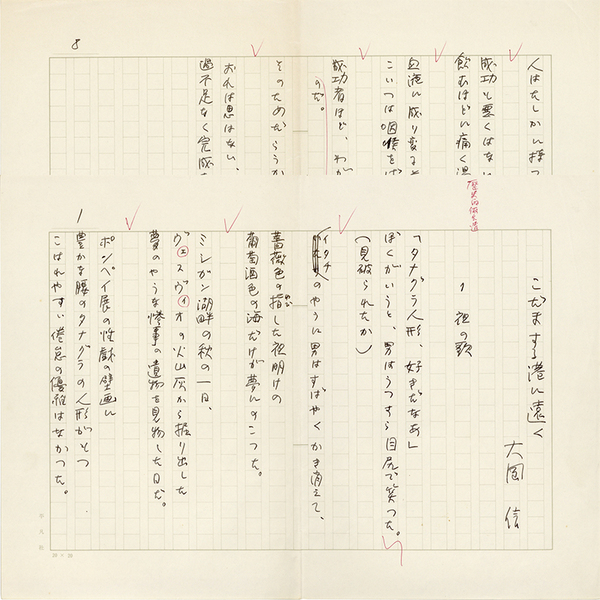 8
人はたしかに
成功も悪くはない
飲むほどに痛く渇
血液に成り変るそ
こいつは咽喉をば
成功者ほど、わが
のだ。
そのためだらうか
おれは思はない、
過不足なく完成
歴史的仮名遣
こだまする港に遠く
大岡 信
1 祖の歌
「タナグラ人形、好きだなあ」
ぼくがいうと、男はうつすら目尻で笑つた。
(見破られたか)
イタチのやうに男はすばやくかき消えて、
薔薇色の指した夜明けの
葡萄酒色の海だけが夢にのこつた。
ミシガン湖畔の秋の一日、
ヴェスヴィオの火山灰から掘り出した
夢のやうな惨事の遺物を見物した日だ。
ポンペイ展の性戯の壁画に
豊かな腰のタナグラの人形がもつ
こはれやすい倦怠の優雅はなかつた。
1
20 × 20